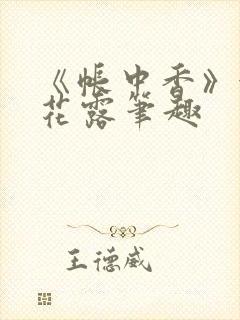 《帐中香》
花露笔趣
王德威